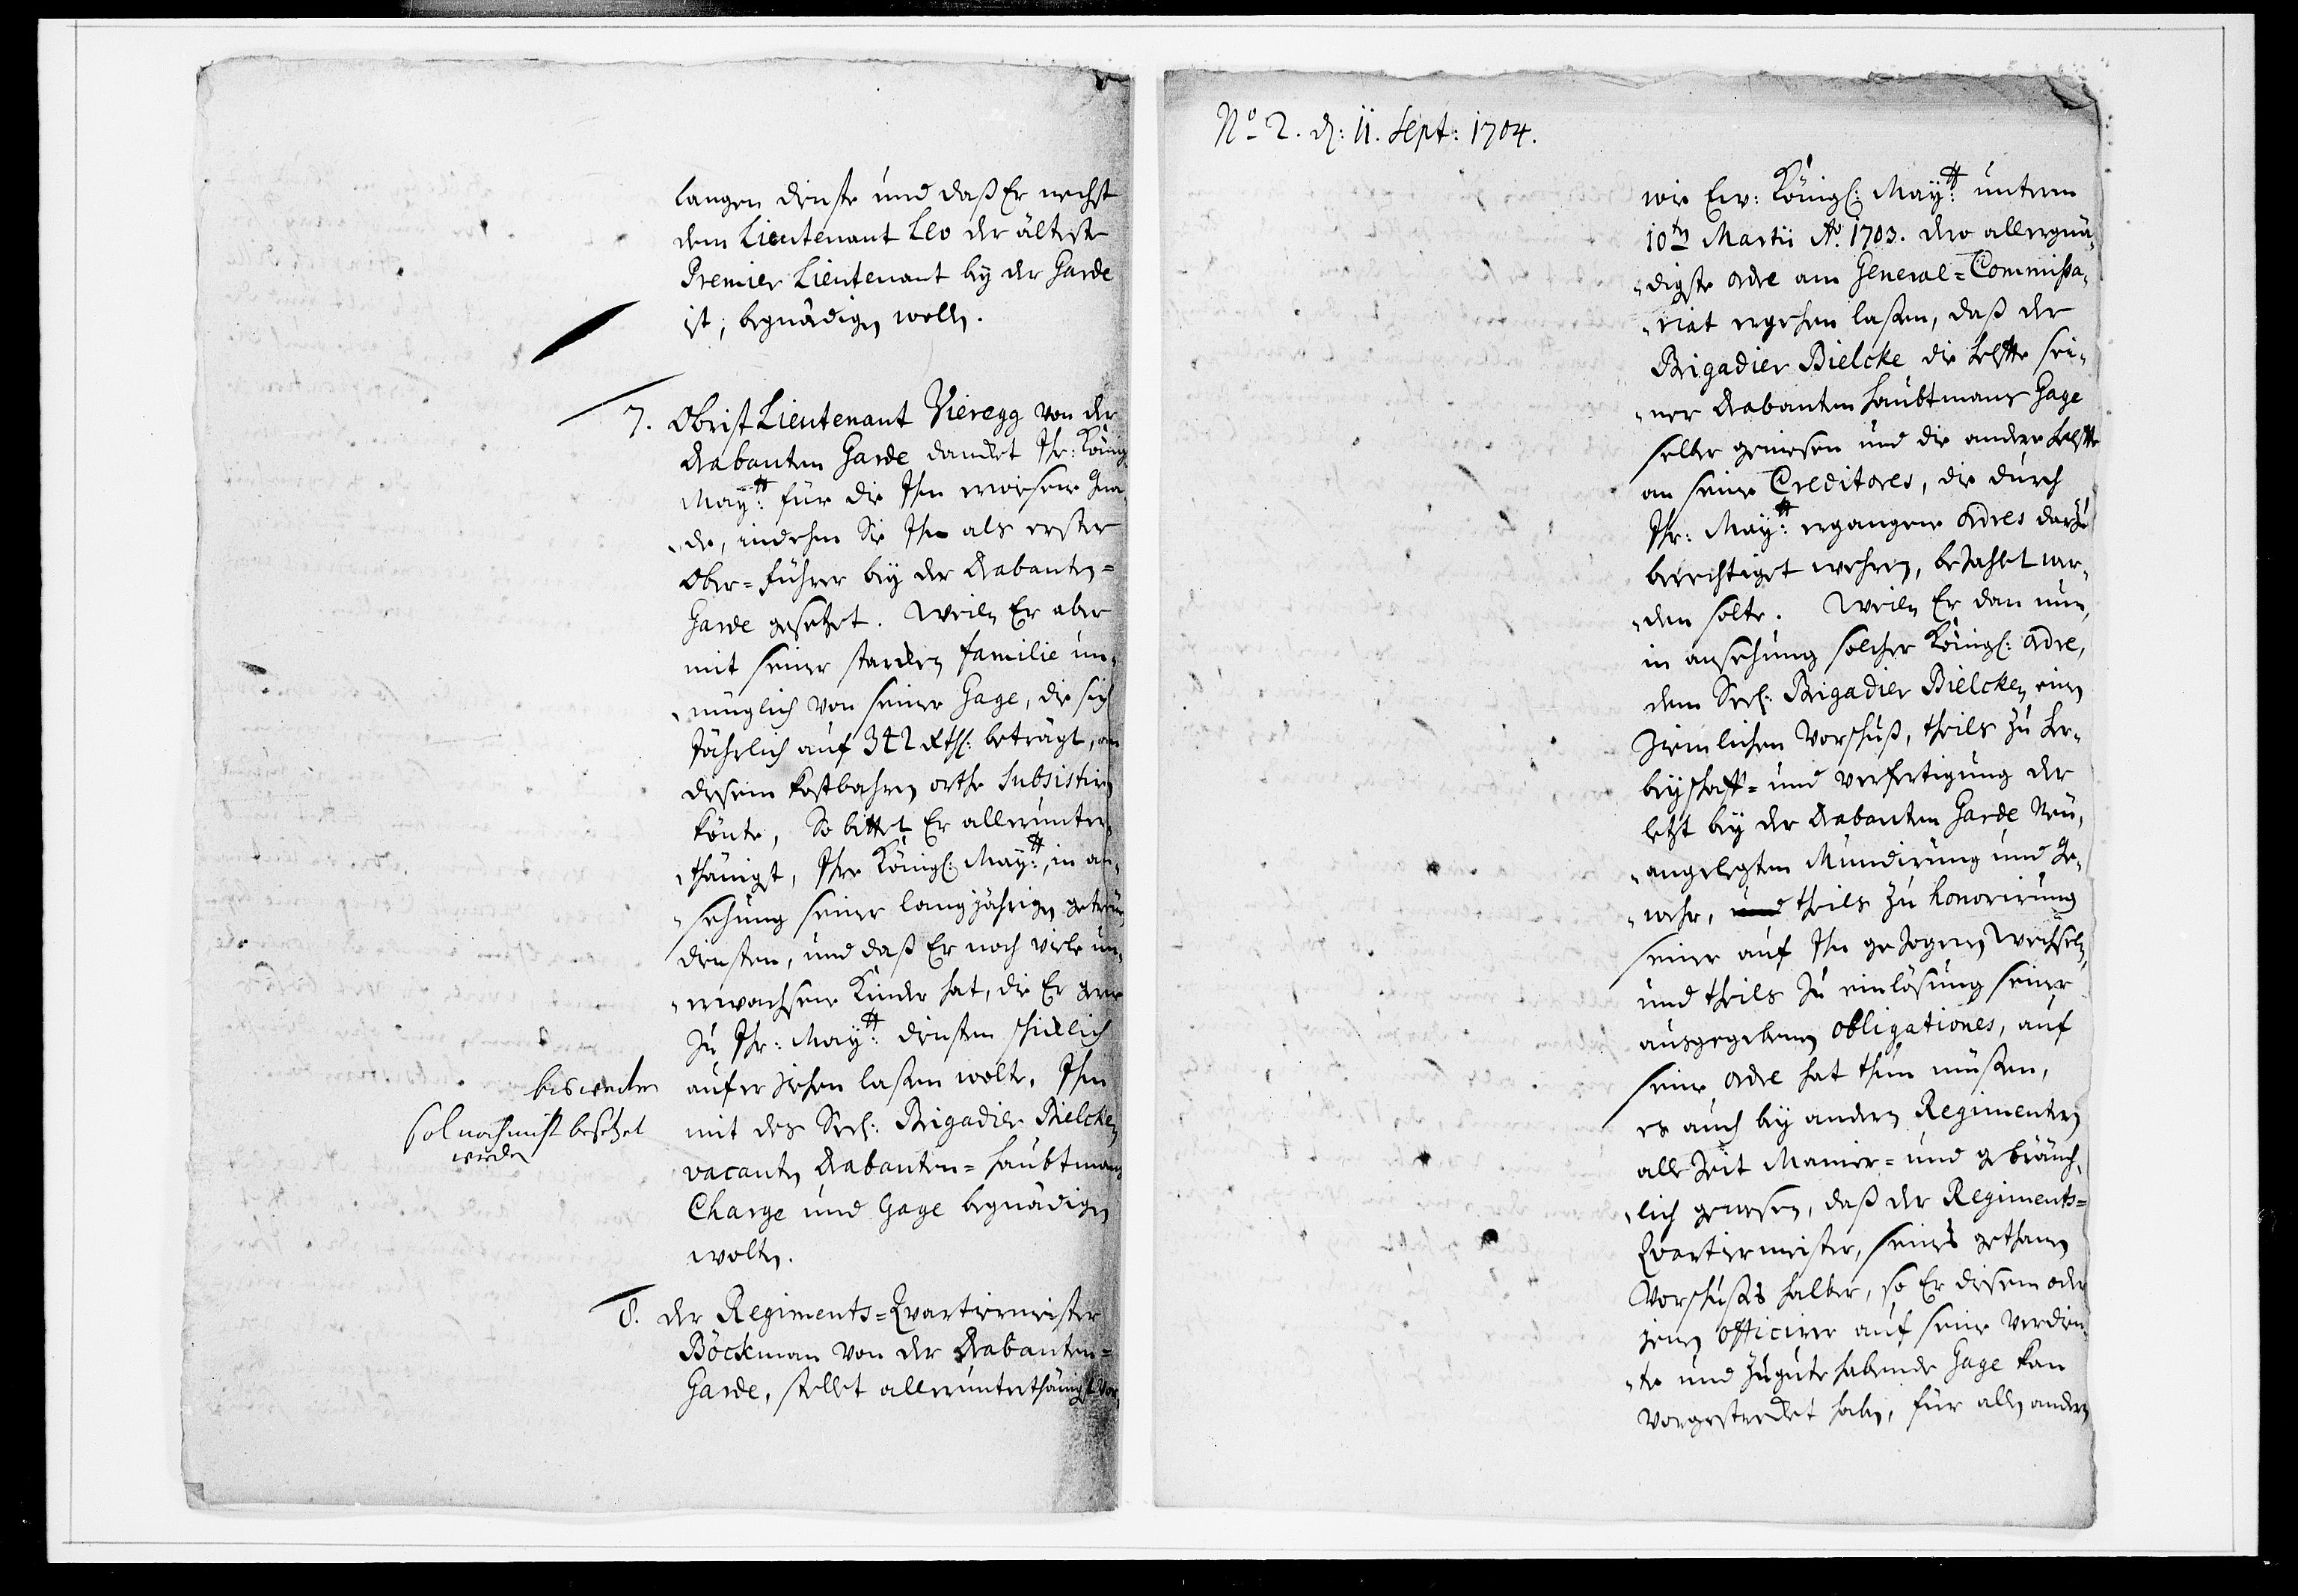 langen dienste und daß Er nechst
dem Lieutenant Leo der älteste
Premier Lieutenant bey der Garde
ist, begnädigen wolle.
7. Obrist Lieutenant Vieregg von der
Drabanten Garde dancket Ihr: König
May:tt für die Ihm erwiesene Gna-
"de, indehm Sie Ihn als erster
Ober=führer bey der Drabanten=
Garde gesetzet. Weilen Er aber
mit seiner starcken familie un-
"müglich von seiner Gage, die sich
Jährlich auf 342 Rthl: beträgt, an
diesem kostbahren orthe subsistiren
könte, So bittet Er allerunter-
"thänigst, Ihre Königl: May:tt, in an-
"sehung seiner langjährigen getreuen
diensten, und daß Er noch viele un-
"erwachsene Kinder hat, die Er gern
zu Ihr: May:tt diensten schicklich
auferziehen laßen wolte, Ihm
mit des Seel: Brigadier Bielcken
vacanten Drabanten=Haubtmans
Charge und Gage begnädigen
wolten.
bis weiter
sol noch nicht besetzet
werden
8. der Regiments=Qvartiermeister
Böckman von der Drabanten=
Garde, stellet allerunterthänigst vor,
No 2. d: 11. Sept: 1704.
wie Ew: Königl: May:tt unterm
10ten Martii Ao. 1703. dero allergnä-
"digste ordre am General=Commissa-
"riat ergehen laßen, daß der
Brigadier Bielcke die helffte sei-
"ner Drabanten Haubtmans Gage
selber geniesen und die andere helffte
an seine Creditores, die durch
Ihr: May:tt ergangene ordres darzu
berechtiget wehren, bezahlet wer-
"den solte. Weilen Er dan nun,
in ansehung solcher Königl: ordre,
dem Seel: Brigadier Bielcken einen
ziemlichen Vorschuß, theils zu her-
beyschaff= und verfertigung der
letzt bey der Drabanten Garde Neu-
"angelegten Mundirung und Ge-
"wehr, und theils zu honorirung
seiner auf Ihn gezogenen Wechseln,
und theils zu einlösung seiner
ausgegebenen obligationes, auf
seine ordre hat thun müßen,
es auch bey andern Regimentern
alle Zeit Manier= und gebräuch-
"lich gewesen, daß der Regiments=
Qvartiermeister, seines gethanen
Vorschußes halber, so Er diesem oder
jenen Officirer auf seine verdien-
"te und zugute habende Gage kan
vorgestrecket haben, für allen andern